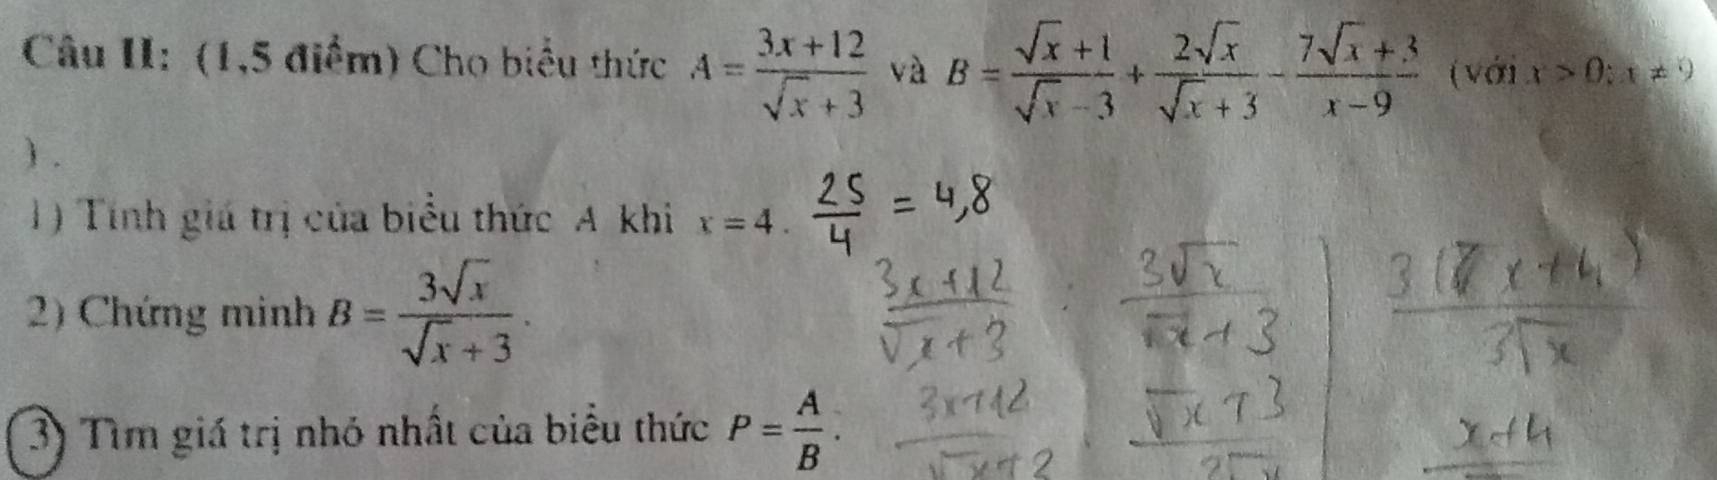 Câu II: (1,5 điểm) Cho biểu thức A = (3x+12)/(√x + 3) và B = (√x + 1)/(√x − 3) + 2√x/(√x + 3) − (7√x + 3)/(x − 9) (với x > 0; x ≠ 9
) .
1) Tính giá trị của biểu thức A khi x = 4 . 25/4 = 4,8
2) Chứng minh B = 3√x/(√x + 3) . (3x+12)/(√x+3) : 3√x/(√x+3) 3(x+4)/(3√x)
3) Tìm giá trị nhỏ nhất của biểu thức P = A/B . (3x+12)/(√x+3) · (√x+3)/(3√x) x+4